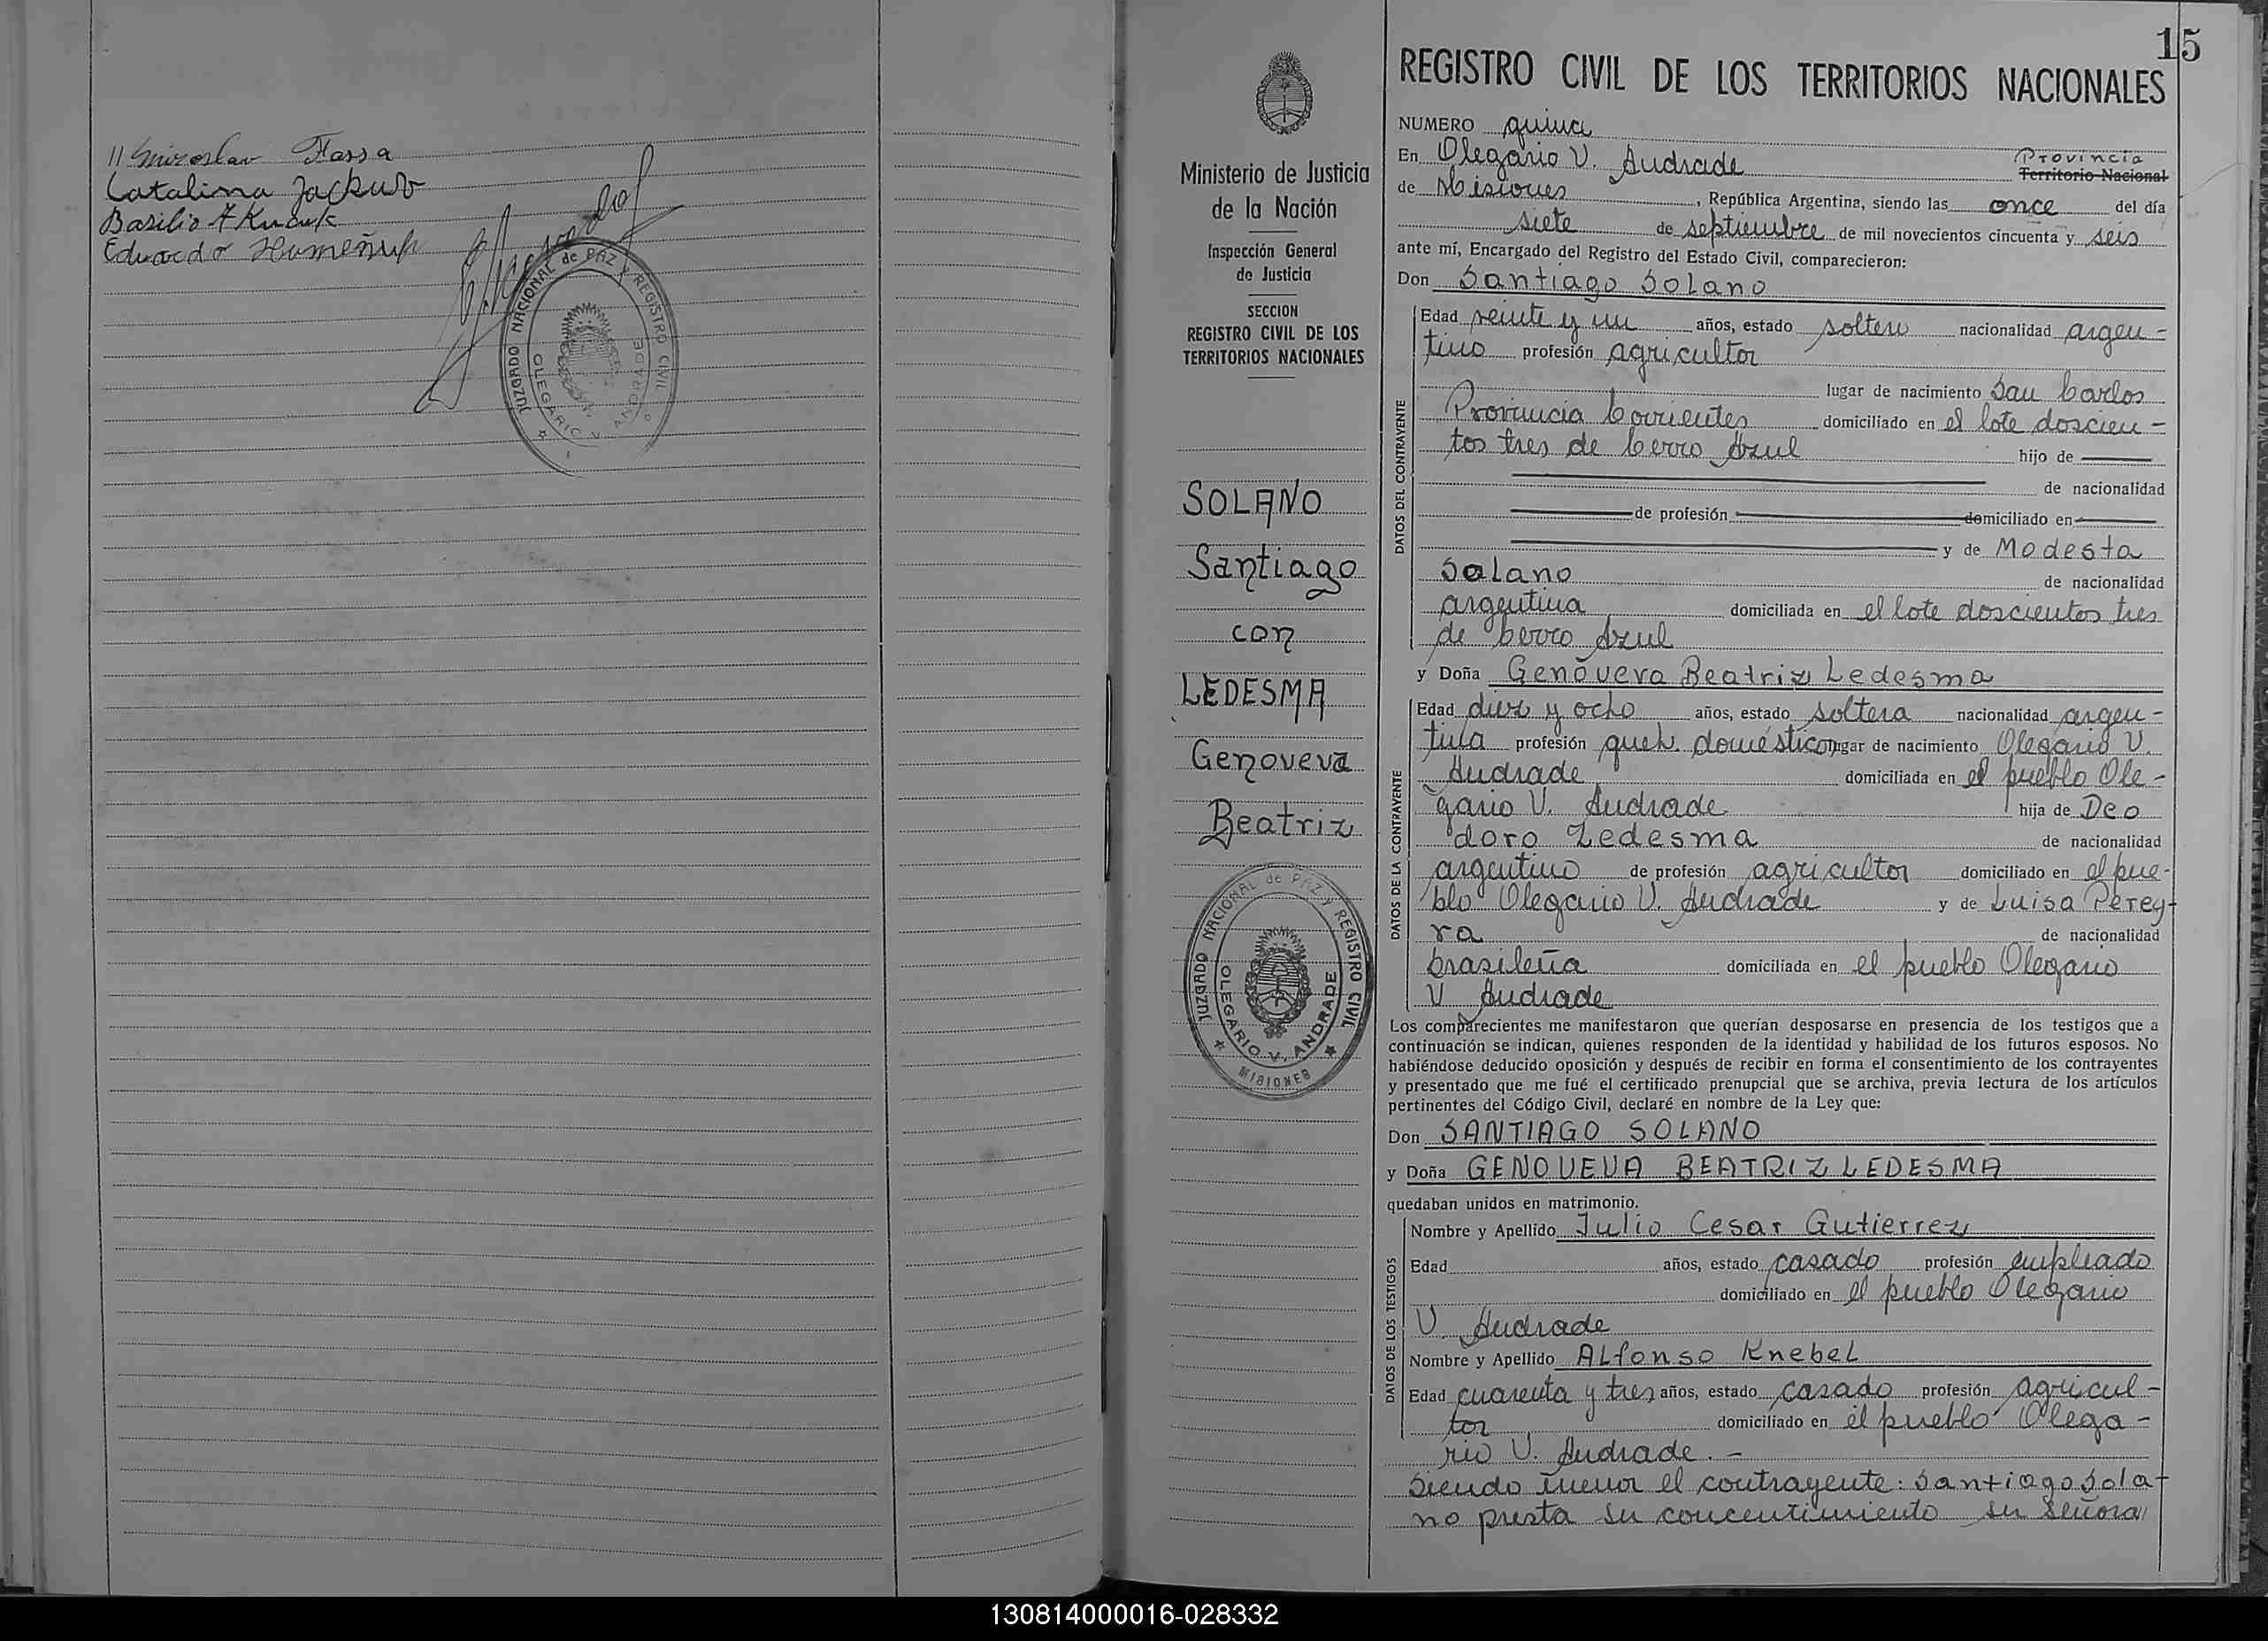 Catalina Jackub
Eduardo
JUZGADO NACIONAL de PAZ Y REGISTRO CIVIL
OLEGARIO V. ANDRADE
15
REGISTRO CIVIL DE LOS TERRITORIOS NACIONALES
Ministerio de Justicia
de la Nación
Inspección General
de Justicia
SECCION
REGISTRO CIVIL DE LOS
TERRITORIOS NACIONALES
SOLANO
Santiago
con
LEDESMA
Genoveva
Beatriz
JUZGADO NACIONAL de PAZ Y REGISTRO CIVIL
OLEGARIO V. ANDRADE
MISIONES
NUMERO quince
En Olegario V. Andrade Provincia
Territorio Nacional
de Misiones, República Argentina, siendo las once del día
siete de septiembre de mil novecientos cincuenta y seis
ante mí, Encargado del Registro del Estado Civil, comparecieron:
Don Santiago Solano
DATOS DEL CONTRAYENTE
Edad veinte y un años, estado soltero nacionalidad argen-
tino profesión agricultor
lugar de nacimiento San Carlos
Provincia Corrientes domiciliado en el lote doscien-
tos tres de Cerro Azul hijo de
de nacionalidad
de profesión domiciliado en
y de Modesta
Solano de nacionalidad
argentina domiciliada en el lote doscientos tres
de Cerro Azul
y Doña Genoveva Beatriz Ledesma
DATOS DE LA CONTRAYENTE
Edad diez y ocho años, estado soltera nacionalidad argen-
tina profesión queh. domésticos lugar de nacimiento Olegario V.
Andrade domiciliada en el pueblo Ole-
gario V. Andrade hija de Deo
doro Ledesma de nacionalidad
argentino de profesión agricultor domiciliado en el pue-
blo Olegario V. Andrade y de Luisa Perey-
ra de nacionalidad
brasileña domiciliada en el pueblo Olegario
V Andrade
Los comparecientes me manifestaron que querían desposarse en presencia de los testigos que a
continuación se indican, quienes responden de la identidad y habilidad de los futuros esposos. No
habiéndose deducido oposición y después de recibir en forma el consentimiento de los contrayentes
y presentado que me fué el certificado prenupcial que se archiva, previa lectura de los artículos
pertinentes del Código Civil, declaré en nombre de la Ley que:
Don SANTIAGO SOLANO
y Doña GENOVEVA BEATRIZ LEDESMA
quedaban unidos en matrimonio.
DATOS DE LOS TESTIGOS
Nombre y Apellido Julio Cesar Gutierrez
Edad años, estado casado profesión empleado
domiciliado en el pueblo Olegario
V. Andrade
Nombre y Apellido Alfonso Knebel
Edad cuarenta y tres años, estado casado profesión agricul-
tor domiciliado en el pueblo Olega-
rio V. Andrade.-
Siendo menor el contrayente: Santiago Sola-
no presta su concentimiento su Señora
130814000016-028332